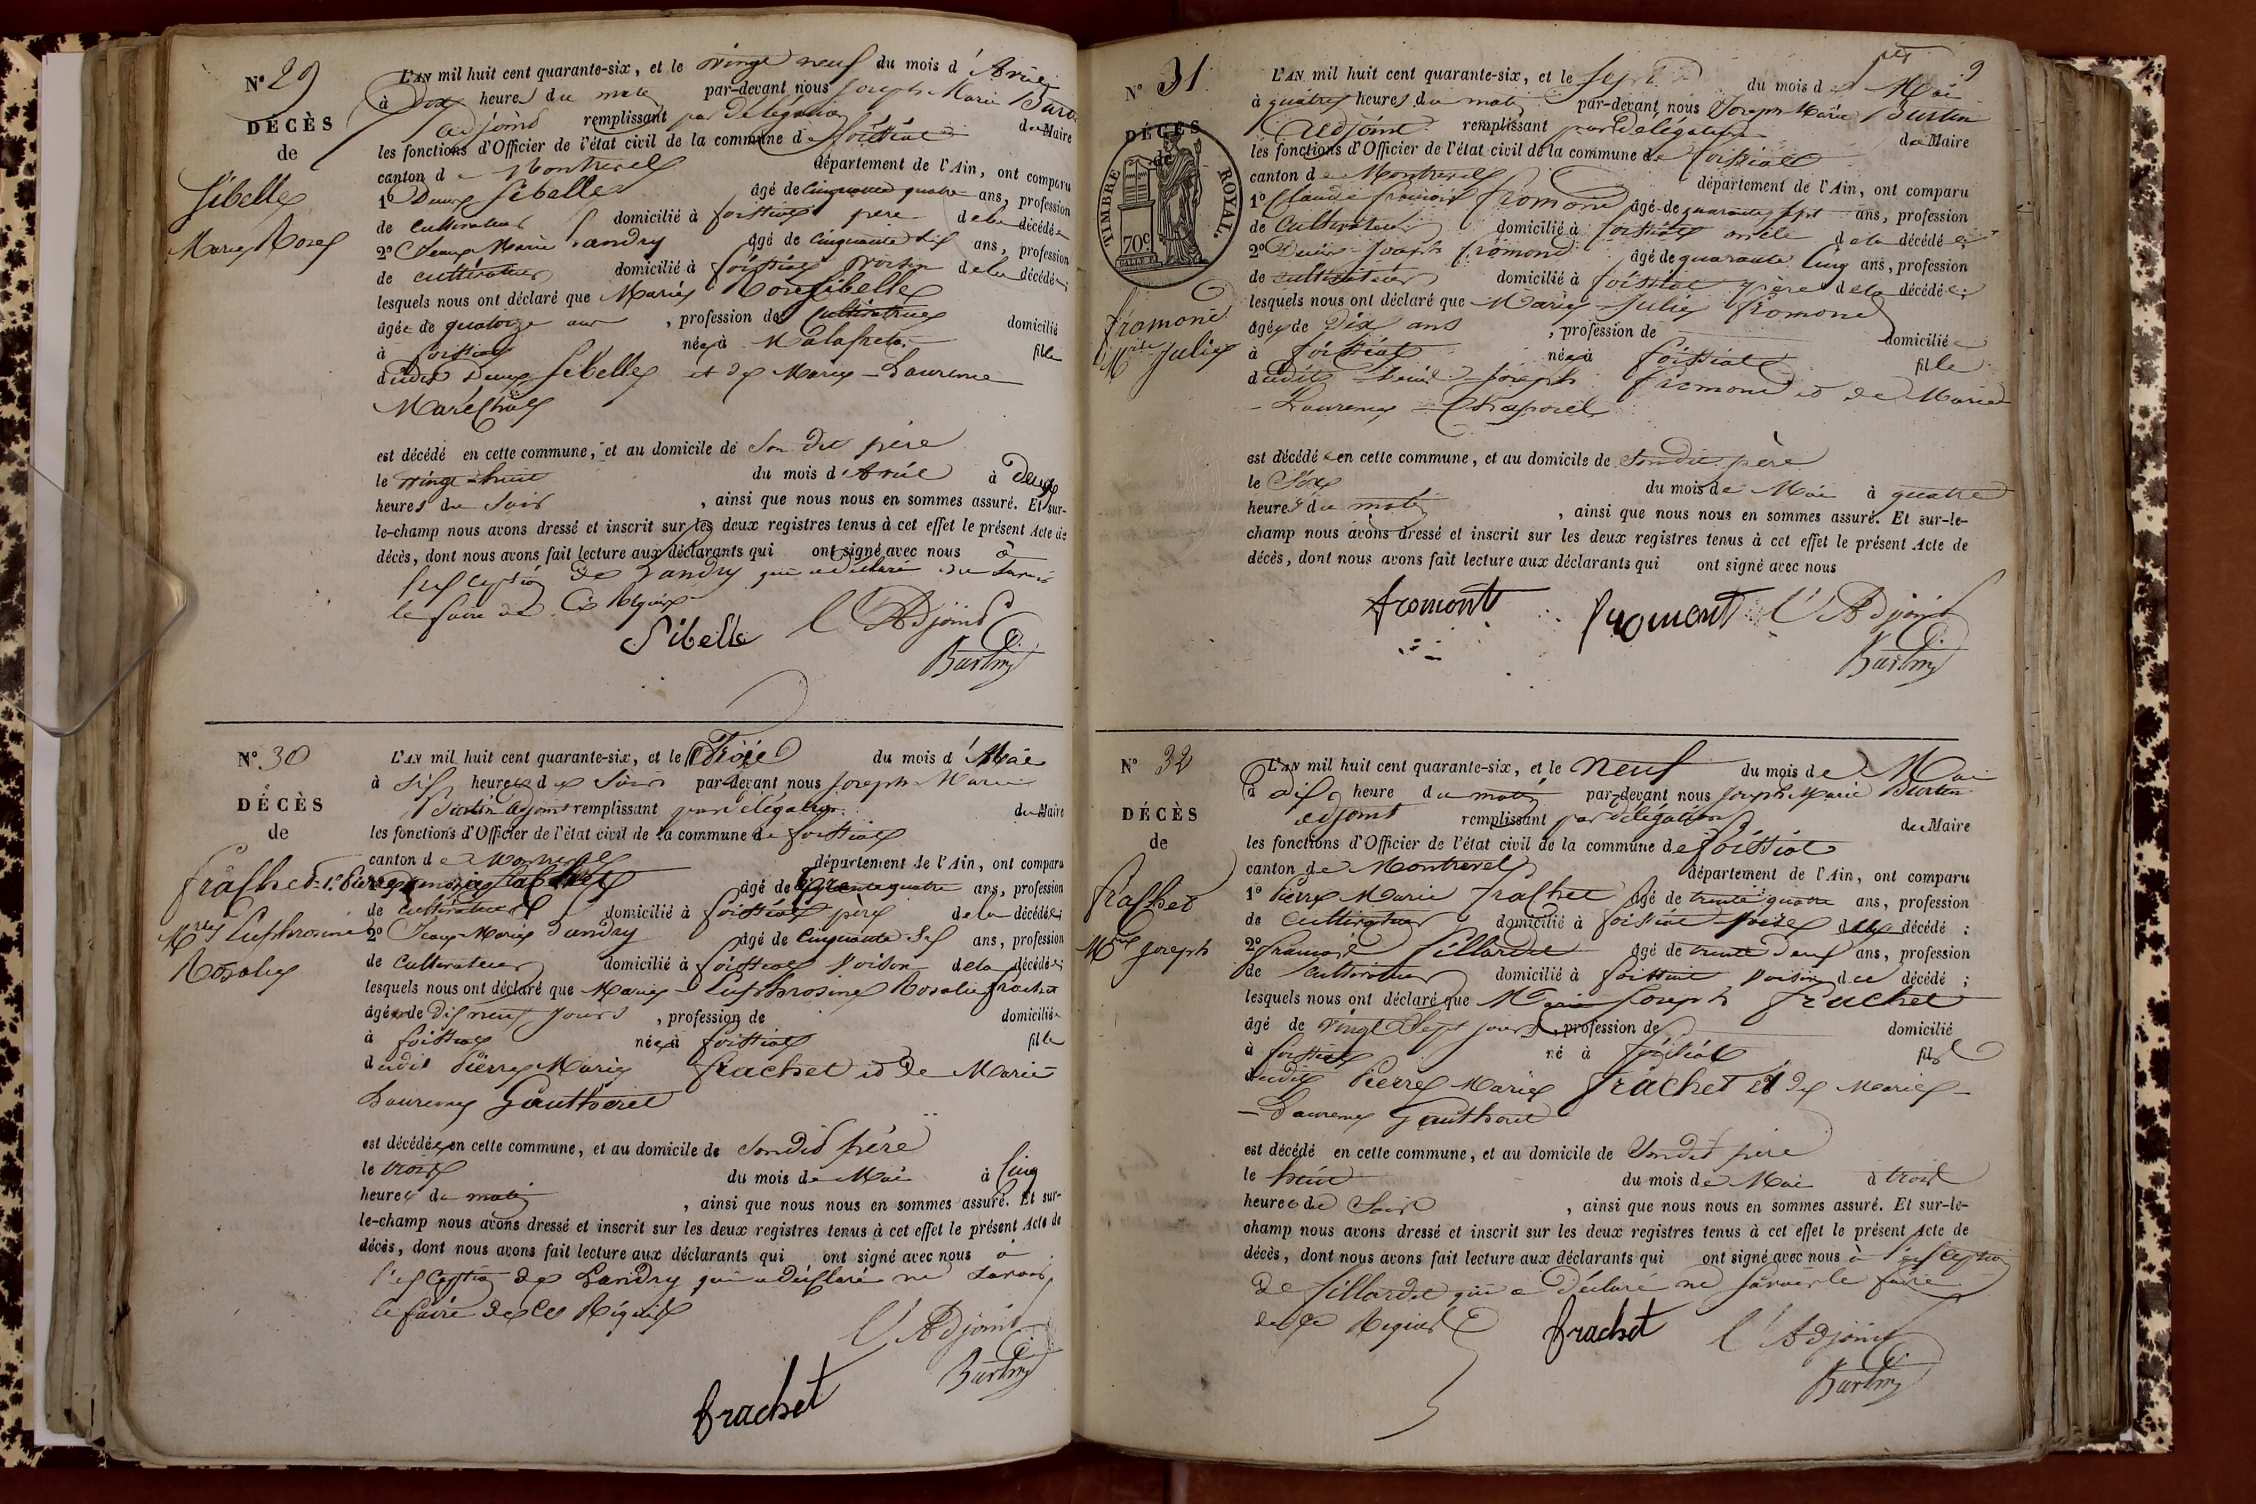 N° 29
DÉCÈS
de
Sibelle
Marie Rose
L'AN mil huit cent quarante-six, et le vingt neuf du mois d'Avril
à Dix heures du matin par-devant nous Joseph Marie Burtin
adjoint remplissant par Délégation du Maire
les fonctions d'Officier de l'état civil de la commune de foissiat
canton de Montrevel département de l'Ain, ont comparu
1° Denis Sibelle âgé de cinquante quatre ans, profession
de cultivateur domicilié à foissiat père de la décédée
2° Jean Marie Landry âgé de cinquante six ans, profession
de cultivateur domicilié à foissiat voisin de la décédée;
lesquels nous ont déclaré que Marie Rose Sibelle
âgée de quatorze ans, profession de cultivatrice domicilié
à foissiat née à Malafretaz fille
dudit Denis Sibelle et de Marie-Laurence
Maréchal
est décédé en cette commune, et au domicile de Son dit père
le vingt-huit du mois d'Avril à Deux
heures du Soir, ainsi que nous nous en sommes assuré. Et sur-
le-champ nous avons dressé et inscrit sur les deux registres tenus à cet effet le présent Acte de
décès, dont nous avons fait lecture aux déclarants qui ont signé avec nous à
l'exception de Landry qui a déclaré ne savoir
le faire de ce Requis
Sibelle l'Adjoint
Burtin
N° 30
DÉCÈS
de
frachet
Mie Euphrosine
Rosalie
L'AN mil huit cent quarante-six, et le Trois du mois de Mai
à six heures du Soir par-devant nous Joseph Marie
Burtin adjoint remplissant par délégation du Maire
les fonctions d'Officier de l'état civil de la commune de foissiat
canton de Montrevel département de l'Ain, ont comparu
1° Pierre Marie frachet âgé de trente quatre ans, profession
de cultivateur domicilié à foissiat père de la décédée;
2° Jean Marie Landry âgé de cinquante six ans, profession
de cultivateur domicilié à foissiat voisin de la décédée;
lesquels nous ont déclaré que Marie Euphrosine Rosalie frachet
âgée de dix neuf jours, profession de domiciliée
à foissiat née à foissiat fille
dudit Pierre Marie frachet et de Marie
Laurence Gautheret
est décédée en cette commune, et au domicile de Sondit père
le trois du mois de Mai à Cinq
heures du matin, ainsi que nous nous en sommes assuré. Et sur-
le-champ nous avons dressé et inscrit sur les deux registres tenus à cet effet le présent Acte de
décès, dont nous avons fait lecture aux déclarants qui ont signé avec nous à
l'exception de Landry qui a déclaré ne savoir
le faire de ce Requis
l'Adjoint
Burtin
frachet
9
N° 31
DÉCÈS
de
TIMBRE ROYAL.
70c
fromond
Mie Julie
L'AN mil huit cent quarante-six, et le sept du mois de Mai
à quatre heures du matin par-devant nous Joseph Marie Burtin
adjoint remplissant par Délégation du Maire
les fonctions d'Officier de l'état civil de la commune de foissiat
canton de Montrevel département de l'Ain, ont comparu
1° Claude francois fromond âgé de quarante sept ans, profession
de cultivateur domicilié à foissiat oncle de la décédée;
2° Denis Joseph fromond âgé de quarante cinq ans, profession
de cultivateur domicilié à foissiat père de la décédée;
lesquels nous ont déclaré que Marie-Julie fromond
âgée de Dix ans, profession de domiciliée
à foissiat née à foissiat fille
dudit Denis Joseph fromond et de Marie
Laurence
est décédée en cette commune, et au domicile de Sondit père
le Six du mois de Mai à quatre
heures du matin, ainsi que nous nous en sommes assuré. Et sur-le-
champ nous avons dressé et inscrit sur les deux registres tenus à cet effet le présent Acte de
décès, dont nous avons fait lecture aux déclarants qui ont signé avec nous
fromont fromont l'Adjoint
Burtin
N° 32
DÉCÈS
de
frachet
Mie Joseph
L'AN mil huit cent quarante-six, et le neuf du mois de Mai
à dix heure du matin par-devant nous Joseph Marie Burtin
adjoint remplissant par délégation du Maire
les fonctions d'Officier de l'état civil de la commune de foissiat
canton de Montrevel département de l'Ain, ont comparu
1° Pierre Marie frachet âgé de trente quatre ans, profession
de cultivateur domicilié à foissiat père du décédé;
2° francois Pillardet âgé de trente deux ans, profession
de cultivateur domicilié à foissiat voisin du décédé;
lesquels nous ont déclaré que Marie Joseph frachet
âgé de vingt Sept jours, profession de domicilié
à foissiat né à foissiat fils
dudit Pierre Marie frachet et de Marie
Laurence Gautheret
est décédé en cette commune, et au domicile de Sondit père
le huit du mois de Mai à trois
heures du Soir, ainsi que nous nous en sommes assuré. Et sur-le-
champ nous avons dressé et inscrit sur les deux registres tenus à cet effet le présent Acte de
décès, dont nous avons fait lecture aux déclarants qui ont signé avec nous à l'exception
de Pillardet qui a déclaré ne savoir le faire
de ce Requis
frachet l'Adjoint
Burtin